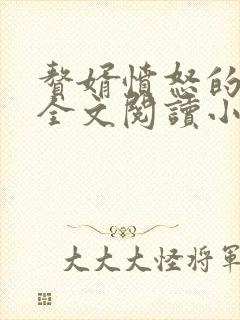 赘婿愤怒的
全文閱讀小
大大大怪将軍